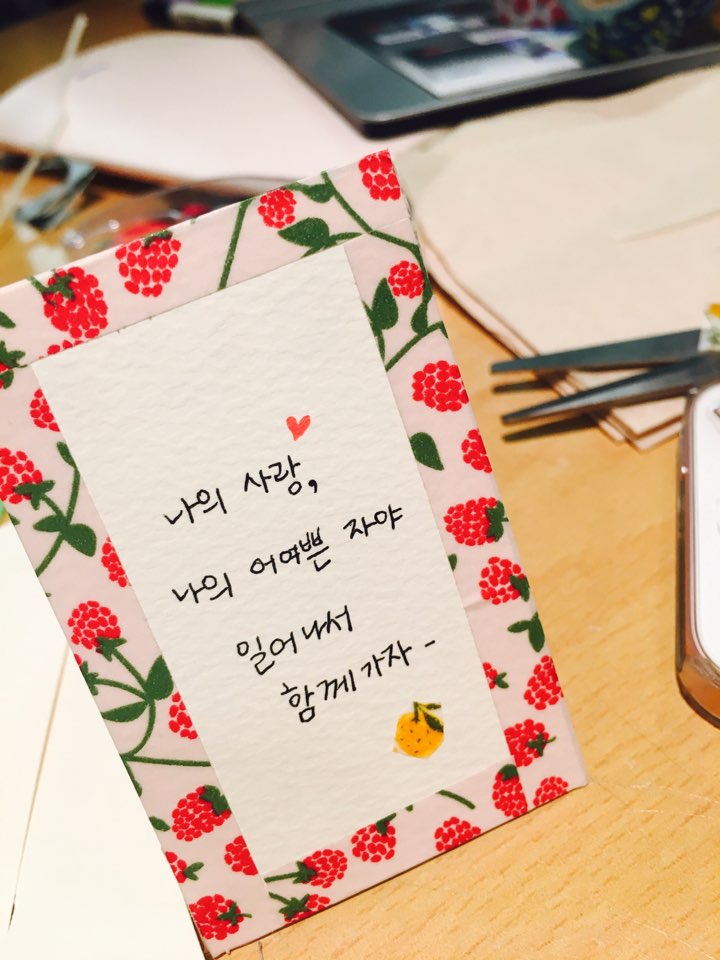 나의 사랑,
나의 어여쁜 자야
일어나서
함께 가자 -